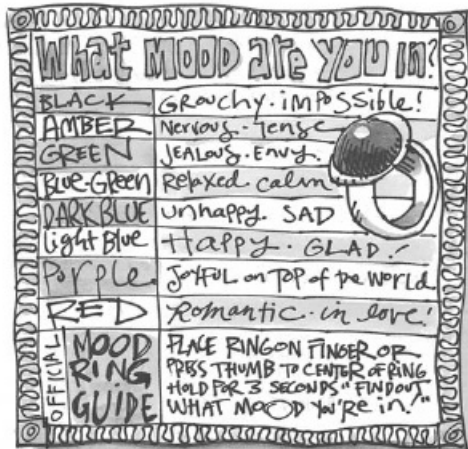 What MOOD are YOU in?
BLACK Grouchy. impossible!
AMBER Nervous. Tense
GREEN JEALOUS. Envy.
Blue-Green Relaxed calm
DARK BLUE unhappy. SAD
light Blue Happy. GLAD!
Purple JOYFUL on TOP of the World
RED Romantic. in love!
OFFICIAL MOOD RING GUIDE
PLACE RING ON FINGER OR
PRESS THUMB TO CENTER OF RING
HOLD FOR 3 SECONDS "FIND OUT
WHAT MOOD YOU'Re in!"